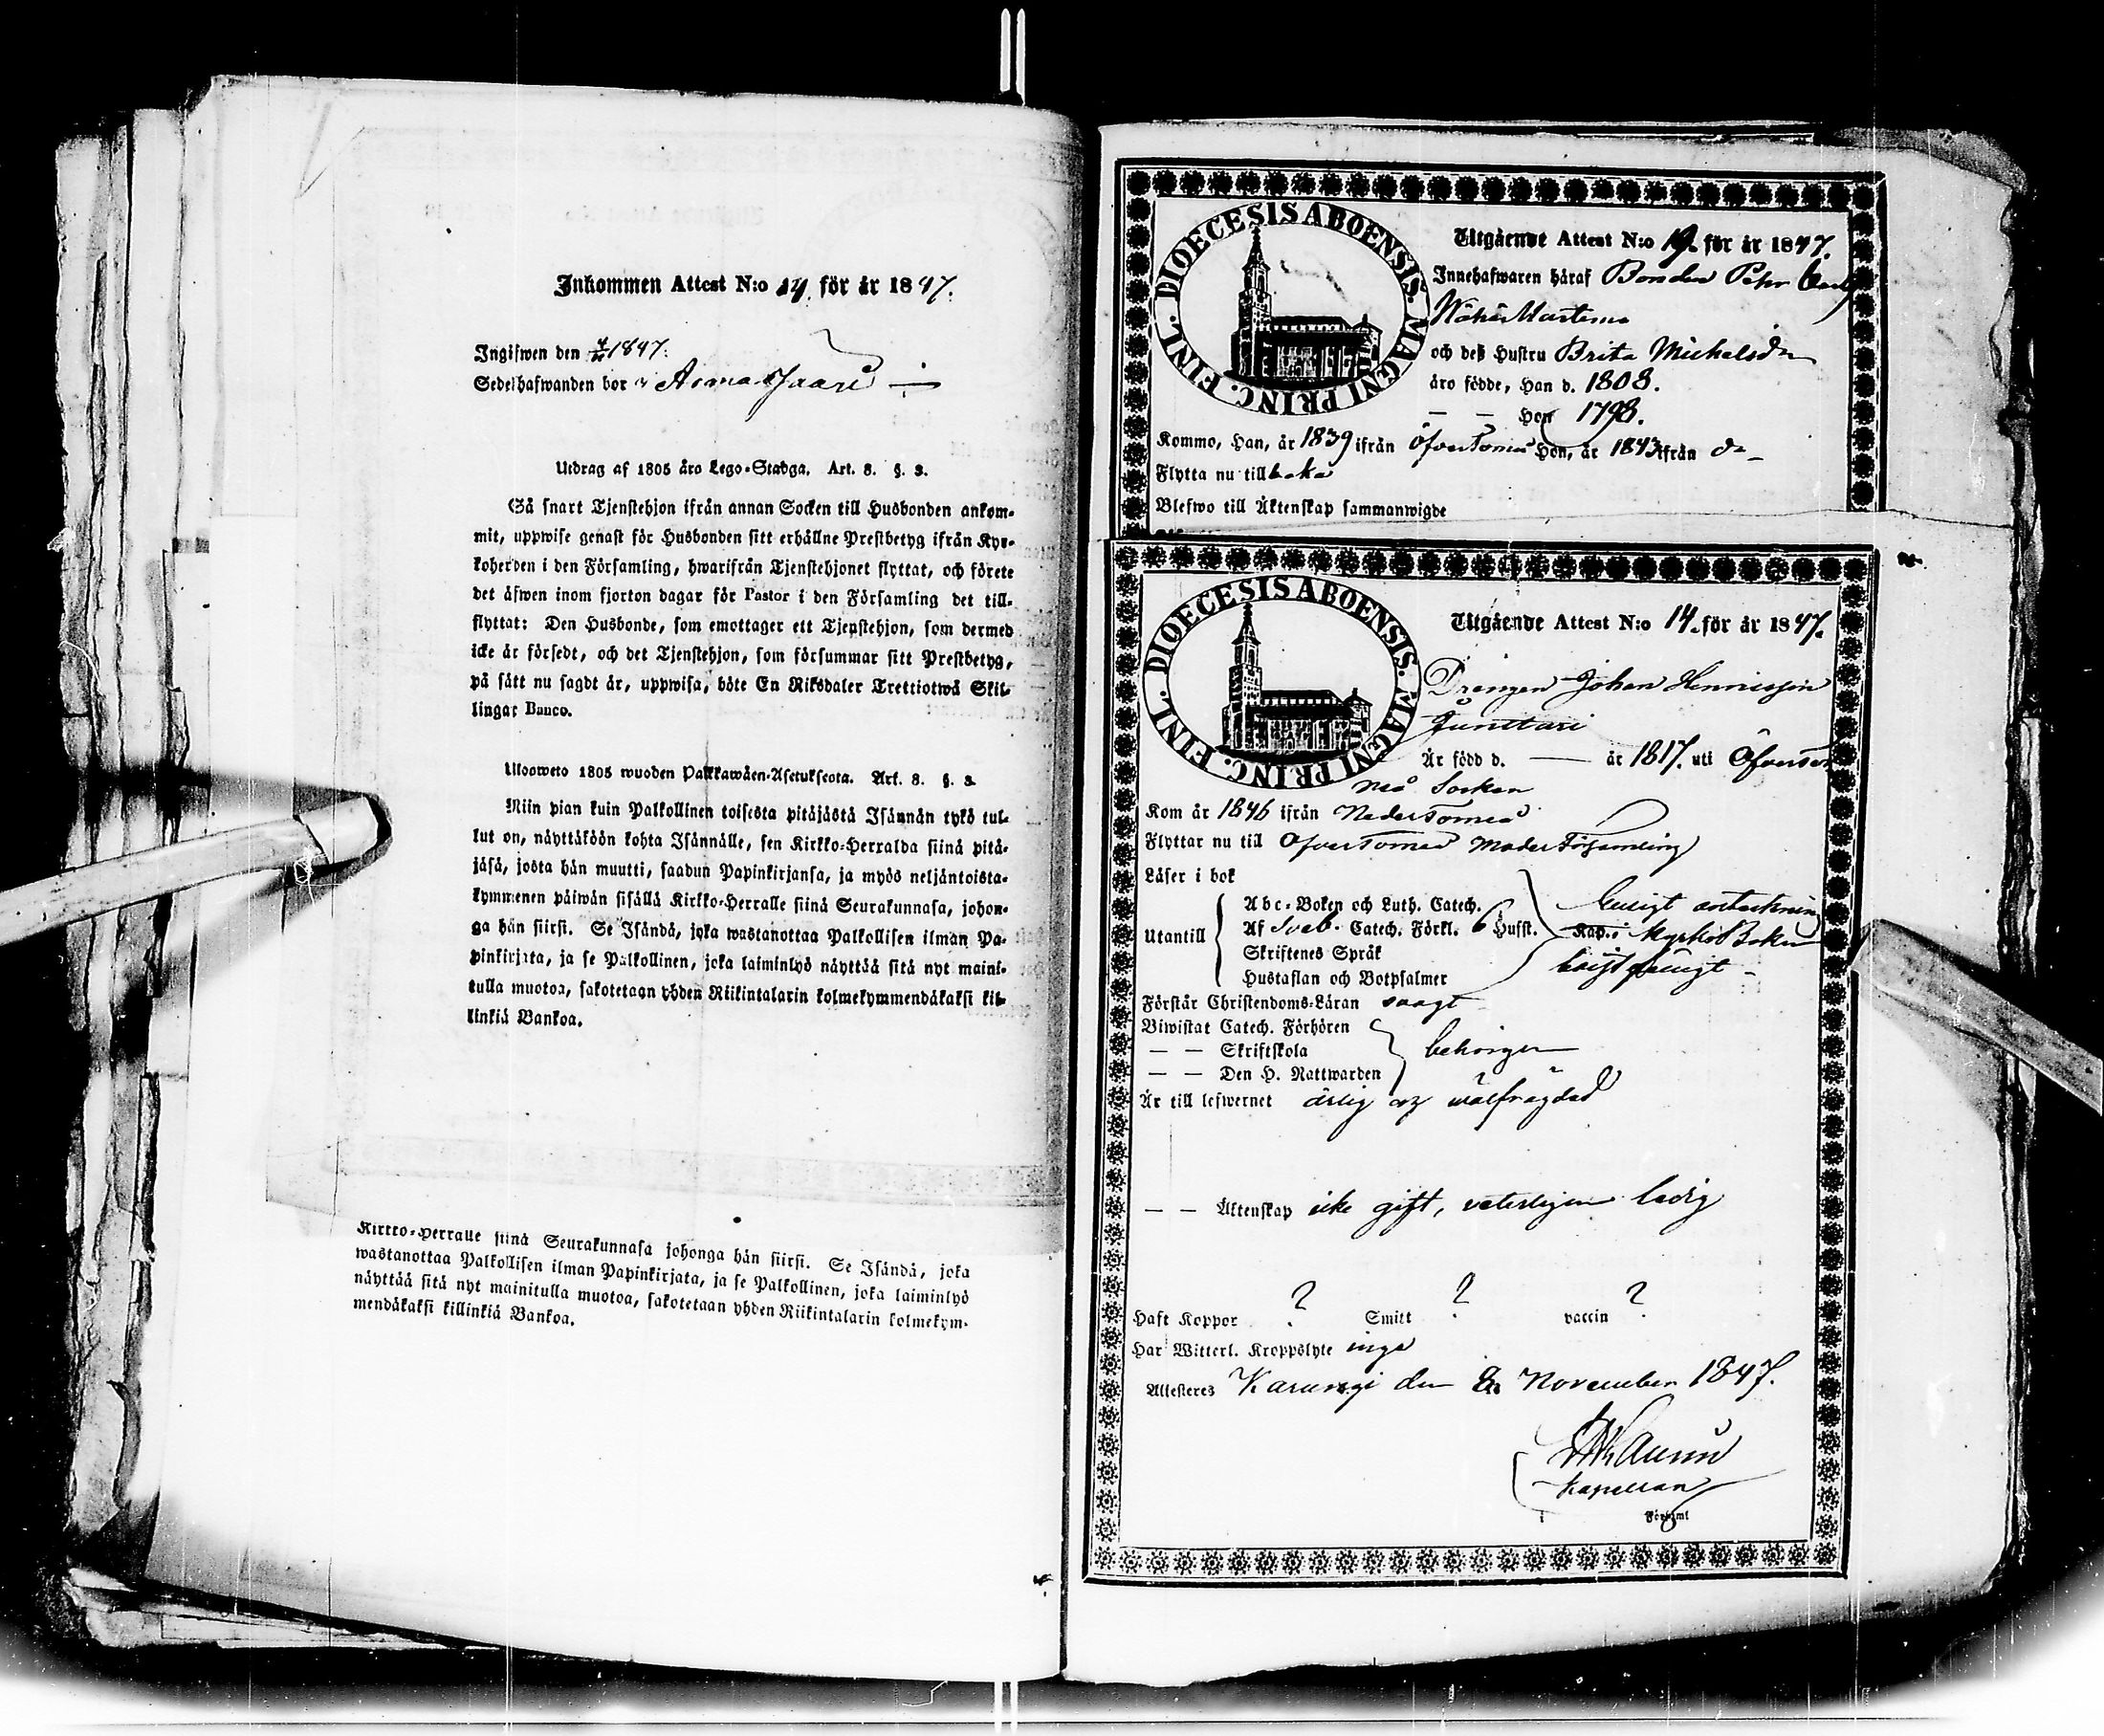 Inkommen Attest N:o 14. för år 1847.
Ingifwen den 1847.
Sedelhafwanden bor i
Utdrag af 1805 års Lego-Stadga. Art. 8. §. 3.
Så snart Tjenstehjon ifrån annan Socken till Husbonden ankom-
mit, uppwise genast för Husbonden sitt erhållne Prestbetyg ifrån Kyr-
koherden i den Församling, hwarifrån Tjenstehjonet flyttat, och förete
det äfwen inom fjorton dagar för Pastor i den Församling det till-
flyttat: Den Husbonde, som emottager ett Tjenstehjon, som dermed
icke är försedt, och det Tjenstehjon, som försummar sitt Prestbetyg,
på sätt nu sagdt är, uppwisa, böte En Riksdaler Trettiotwå Skil-
lingar Banco.
Ulooweto 1805 wuoden Palkkawäen-Asetuksesta. Art. 8. §. 3.
Niin pian kuin Palkollinen toisesta pitäjästä Isännän tykö tul-
lut on, näyttäköön kohta Isännälle, sen Kirkko-Herralda siinä pitä-
jäsä, josta hän muutti, saadun Papinkirjansa, ja myös neljäntoista-
kymmenen päiwän sisällä Kirkko-Herralle siinä Seurakunnasa, johon-
ga hän siirsi. Se Isändä, joka wastanottaa Palkollisen ilman Pa-
pinkirjata, ja se Palkollinen, joka laiminlyö näyttää sitä nyt maini-
tulla muotoa, sakotetaan yhden Riikintalarin kolmekymmendäkaksi kil-
linkiä Bankoa.
Kirkko-Herralle siinä Seurakunnasa johonga hän siirsi. Se Isändä, joka
wastanottaa Palkollisen ilman Papinkirjata, ja se Palkollinen, joka laiminlyö
näyttää sitä nyt mainitulla muotoa, sakotetaan yhden Riikintalarin kolmekym-
mendäkaksi killinkiä Bankoa.
DIOECESIS ABOENSIS. MAGNI PRINC. FINL.
Utgående Attest N:o för år 1847.
Innehafwaren häraf Bonden Pehr
och deß Hustru Brita Michelsdr
äro födde, Han d. 1808.
— — Hon 1798.
Kommo, Han, år 1839 ifrån Öfvertorneå Hon, år 1843 ifrån do
Flytta nu tillbaka
Blefwo till Äktenskap sammanwigde
DIOECESIS ABOENSIS. MAGNI PRINC. FINL.
Utgående Attest N:o 14. för år 1847.
Drängen Johan Henricsson
Junttari
Är född d. — år 1817. uti Öfvertor
neå Socken
Kom år 1846 ifrån NederTorneå
Flyttar nu till OfverTorneå ModerFörsamling
Läser i bok
Utantill
Abc-Boken och Luth. Catech.
Af Sveb. Catech. Förkl. 6 Hufst. Kap.
Skriftenes Språk
Hustaflan och Botpsalmer
enligt anteckning
i KyrkoBoken
Förstår Christendoms-Läran svagt
Biwistat Catech. Förhören
— — Skriftskola
— — Den H. Nattwarden
behörigen
Är till lefwernet ärlig och wälfrägdad
— — Äktenskap icke gift, veterligen ledig
Haft Koppor ? Smitt ? vaccin ?
Har Witterl. Kroppslyte inga
Attesteres Karungi den November 1847.
Kapellan
i Församl